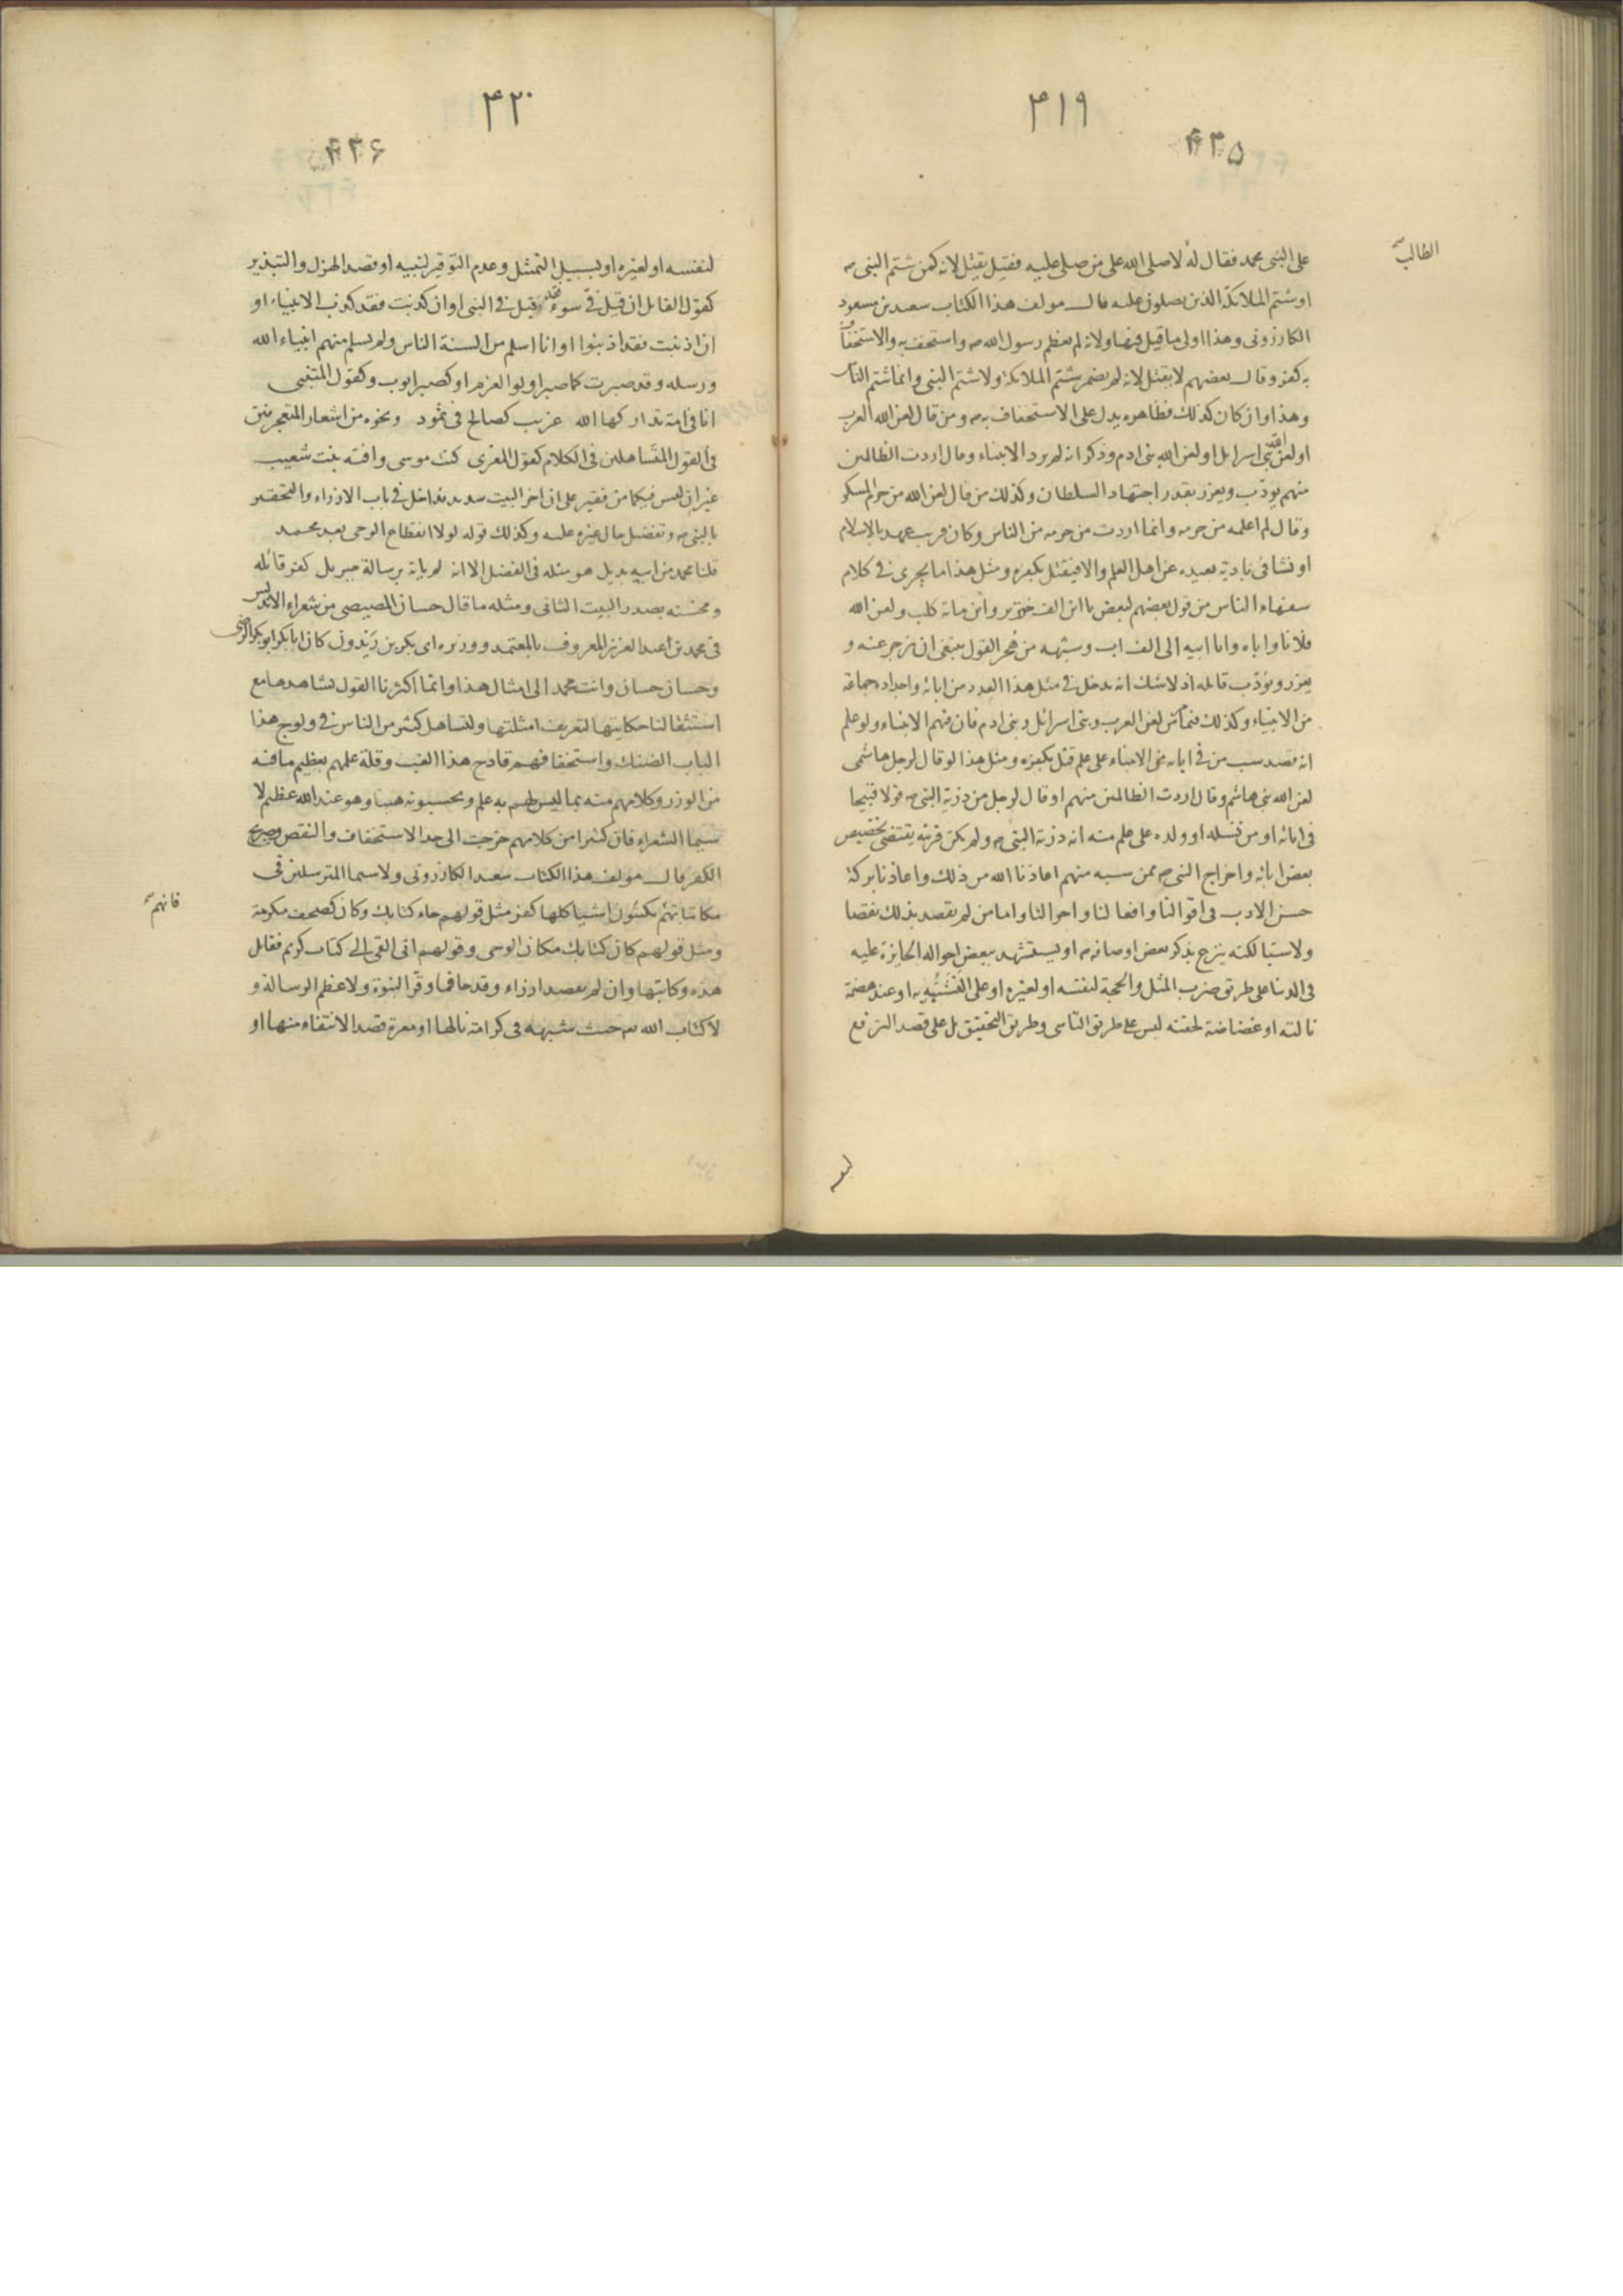 ۴۱۹
۴۳۵
الطالب
على النبى محمد فقال له لا صلى الله على من صلى عليه فقيل يقتل لانه كمن شتم النبى
او شتم الملائكة الذين يصلون عليه قال مولف هذا الكتاب سعيد بن مسعود
الكازرونى وهذا اولى ما قيل فيها ولانه لم يعظم رسول الله ص واستخف به والاستخفاف
به كفر وقال بعضهم لا يقتل لانه لم يضمر شتم الملائكة ولا شتم النبى وانما شتم الناس
وهذا وان كان كذلك فظاهره يدل على الاستخفاف به ص ومن قال لعن الله العرب
او لعن الله بنى اسرايل او لعن الله بنى ادم وذكر انه لم يرد الانبياء وقال اردت الظالمين
منهم يودب ويعزر بقدر اجتهاد السلطان وكذلك من قال لعن الله من حرم المسكر
وقال لم اعلمه من حرمه وانما اردت من حرمه من الناس وكان قريب عهد بالاسلام
او نشا فى بادية بعيده عن اهل العلم والا فيقتل بكفره ومثل هذا ما يجرى فى كلام
سفهاء الناس من قول بعضهم لبعض يا ابن الف خنزير وابن ماية كلب ولعن الله
فلانا واباه وابا ابيه الى الف اب وشبهه من هجر القول ينبغى ان يزجر عنه و
يعزر ويؤدب قايله اذ لا شك انه يدخل فى مثل هذا العدد من ابائه واجداده جماعة
من الانبياء وكذلك فيما مر لعن العرب وبنى اسرائل وبنى ادم فان فيهم الانبياء ولو علم
انه قصد سب من فى ابايه من الانبياء على علم قتل بكفره ومثل هذا لو قال لرجل هاشمى
لعن الله بنى هاشم وقال اردت الظالمين منهم او قال لرجل من ذرية النبى ص قولا قبيحا
فى ابائه او من نسله او ولده على علم منه انه ذرية النبى ص ولم يكن قرينه يقتضى تخصيص
بعض ابائه واخراج النبى ص ممن سبه منهم اعاذنا الله من ذلك واعاذنا بركة
حسن الادب فى اقوالنا وافعالنا واحوالنا واما من لم يقصد بذلك نقصا
ولا سبا لكنه ينزع بذكر بعض اوصافه ص او يستشهد ببعض احواله الجايزة عليه
فى الدنيا على طريق ضرب المثل والحجة لنفسه او لغيره او على التشبه به او عند هضمة
نالته او غضاضة لحقته ليس على طريق التاسى وطريق التحقيق بل على قصد الترفع
لنفسه
۴۲۰
۴۳۶
لنفسه او لغيره او لسبيل التمثل وعدم التوقير لنبيه او قصد الهزل والتبذير
كقول القايل ان قيل فى سوء فقد قيل فى النبى او ان كذبت فقد كذب الانبياء او
ان اذنبت فقد اذنبوا او انا اسلم من السنة الناس ولم يسلم منهم انبياء الله
ورسله وقد صبرت كما صبر اولوا العزم او كصبر ايوب وكقول المتنبى
انا فى امة تداركها الله غريب كصالح فى ثمود ونحوه من اشعار المتعجرفين
فى القول المتساهلين فى الكلام كقول المعرى كنت موسى وافته بنت شعيب
غير ان ليس فيكما من فقير على ان اخر البيت شديد تداخل فى باب الازراء والتحقير
بالنبى ص وتفضيل حال غيره عليه وكذلك قوله لولا انقطاع الوحى بعد محمد
قلنا محمد من ابيه بديل هو مثله فى الفضل الا انه لم ياته برسالة جبريل كفر قائله
ومثله ما قال حسان المصيصى من شعراء الاندلس
فى محمد بن عبد العزيز المعروف بالمعتمد ووزيره ابى بكر بن زيدون كان ابا بكر ابو بكر الرضى
وحسان حسان وانت محمد الى امثال هذا وانما اكثرنا القول بشاهدها مع
استثقالنا حكايتها لتعريف امثلتها ولتساهل كثير من الناس فى ولوج هذا
الباب الضنك واستخفافهم قادح هذا العبء وقلة علمهم بعظيم ما فيه
من الوزر وكلامهم منه بما ليس لهم به علم وتحسبونه هينا وهو عند الله عظيم لا
سيما الشعراء فان كثيرا من كلامهم خرجت الى حد الاستخفاف والنقص وصريح
الكفر قال مولف هذا الكتاب سعيد الكازرونى ولا سيما المترسلين فى
فانهم
مكاتباتهم يكتبون اشيا كلها كفر مثل قولهم جاء كتابك وكان كصحف مكرمة
ومثل قولهم كان كتابك مكان الوحى وقولهم انى القى الى كتاب كريم فقايل
هذه وكاتبها وان لم يقصد ازراء وقدحا فما وقر النبوة ولا عظم الرسالة و
لا كتاب الله حيث شبهه فى كرامة نالها او معرة قصد الانتفاء منها او